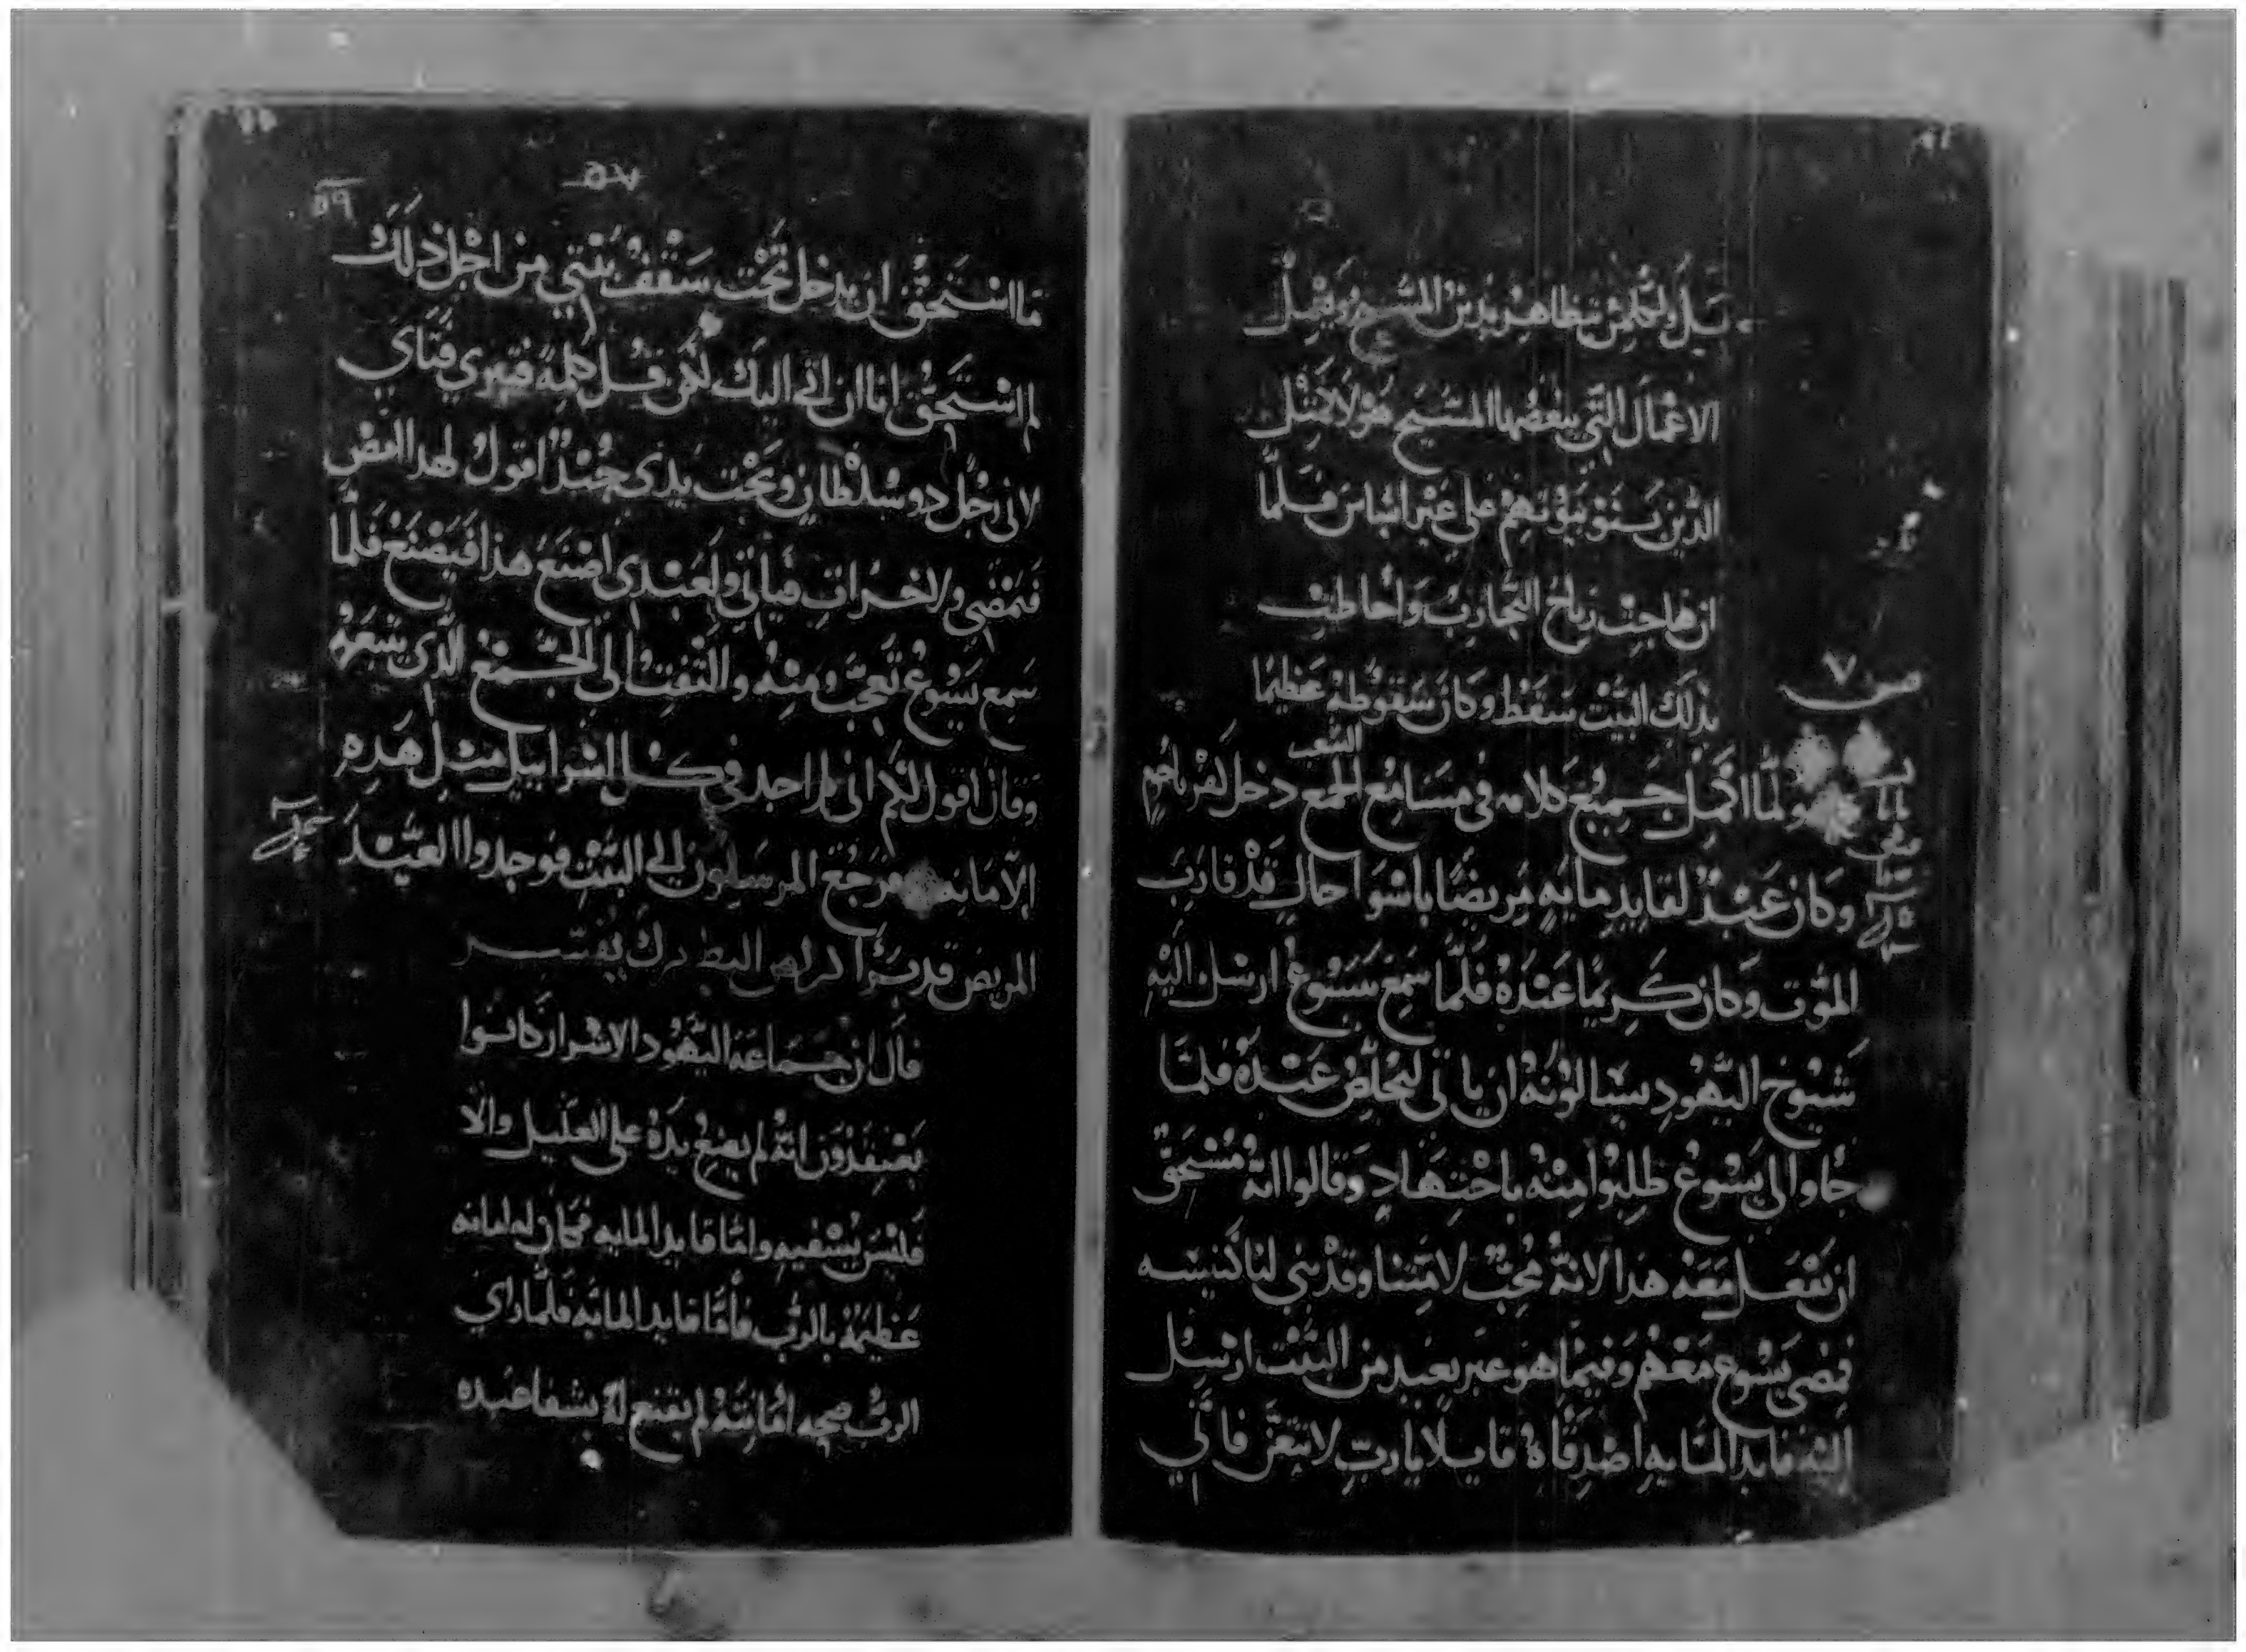 بل ولكن يتظاهر بدين المسيح ويعمل
الاعمال التي يبغضها المسيح هولا مثل
الذين بنو بيوتهم على غير اساس فلما
ان هاجت رياح التجارب واحاطت
بذلك البيت سقط وكان سقوطه عظيما
ص ٧
ولما اكمل جميع كلامه في مسامع الجمع دخل كفرناحوم
الشعب
متى
وكان عبد لقايد مايه مريضا باسوا حال قد قارب
الموت وكان كريما عنده فلما سمع بيسوع ارسل اليه
شيوخ اليهود يسالونه ان ياتي ليخلص عبده فلما
جاوا الى يسوع طلبوا منه باجتهاد وقالوا انه مستحق
ان يفعل معه هذا لانه محب لامتنا وقد بنى لنا كنيسه
فمضى يسوع معهم وفيما هو غير بعيد من البيت ارسل
اليه قايد المايه اصدقاه قايلا يارب لا تتعن فاني
٥٩
ما استحق ان يدخل تحت سقف بيتي من اجل ذلك
لم استحق انا ان اتي اليك لكن قل كلمة فيبرى فتاي
لاني رجل دو سلطان وتحت يدي جند اقول لهدا امض
فيمضي ولاخر ات فياتي ولعبدي اصنع هذا فيصنع فلما
سمع يسوع تعجب منه والتفت الى الجمع الذي يتبعه
وقال اقول لكم اني لم اجد في كل اسراييل مثل هده
الامانه فرجع المرسلون الى البيت فوجدوا العبد
المريض قد برا البطرك يفسر
قال ان جماعه اليهود الاشرار كانوا
يعتقدون انه لم يضع يده على العليل والا
فليس يشفيه واما قايد المايه فكان له امانه
عظيمه بالرب فاما قايد المايه فلما راي
الرب صحه امانته لم يقنع له بشفا عبده